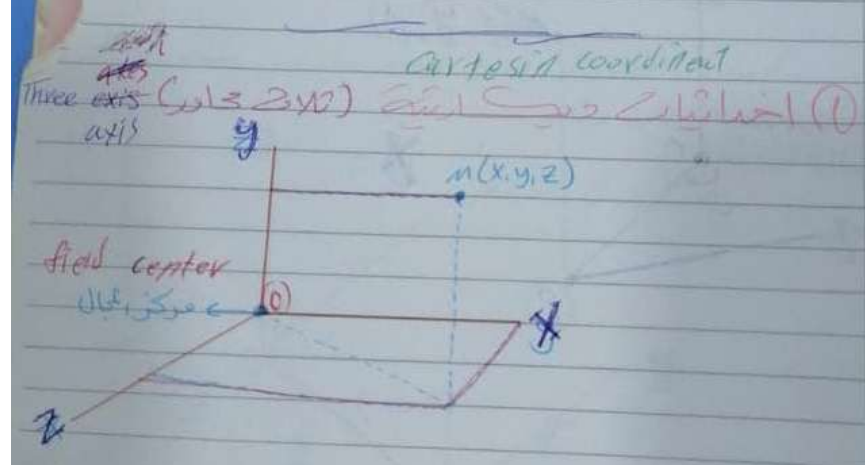 Cartesin coordinent
① احداثيات ديكارتية (3 محاور)
Three axis
y
m(x.y.z)
field center
مركز المجال
(O)
X
Z